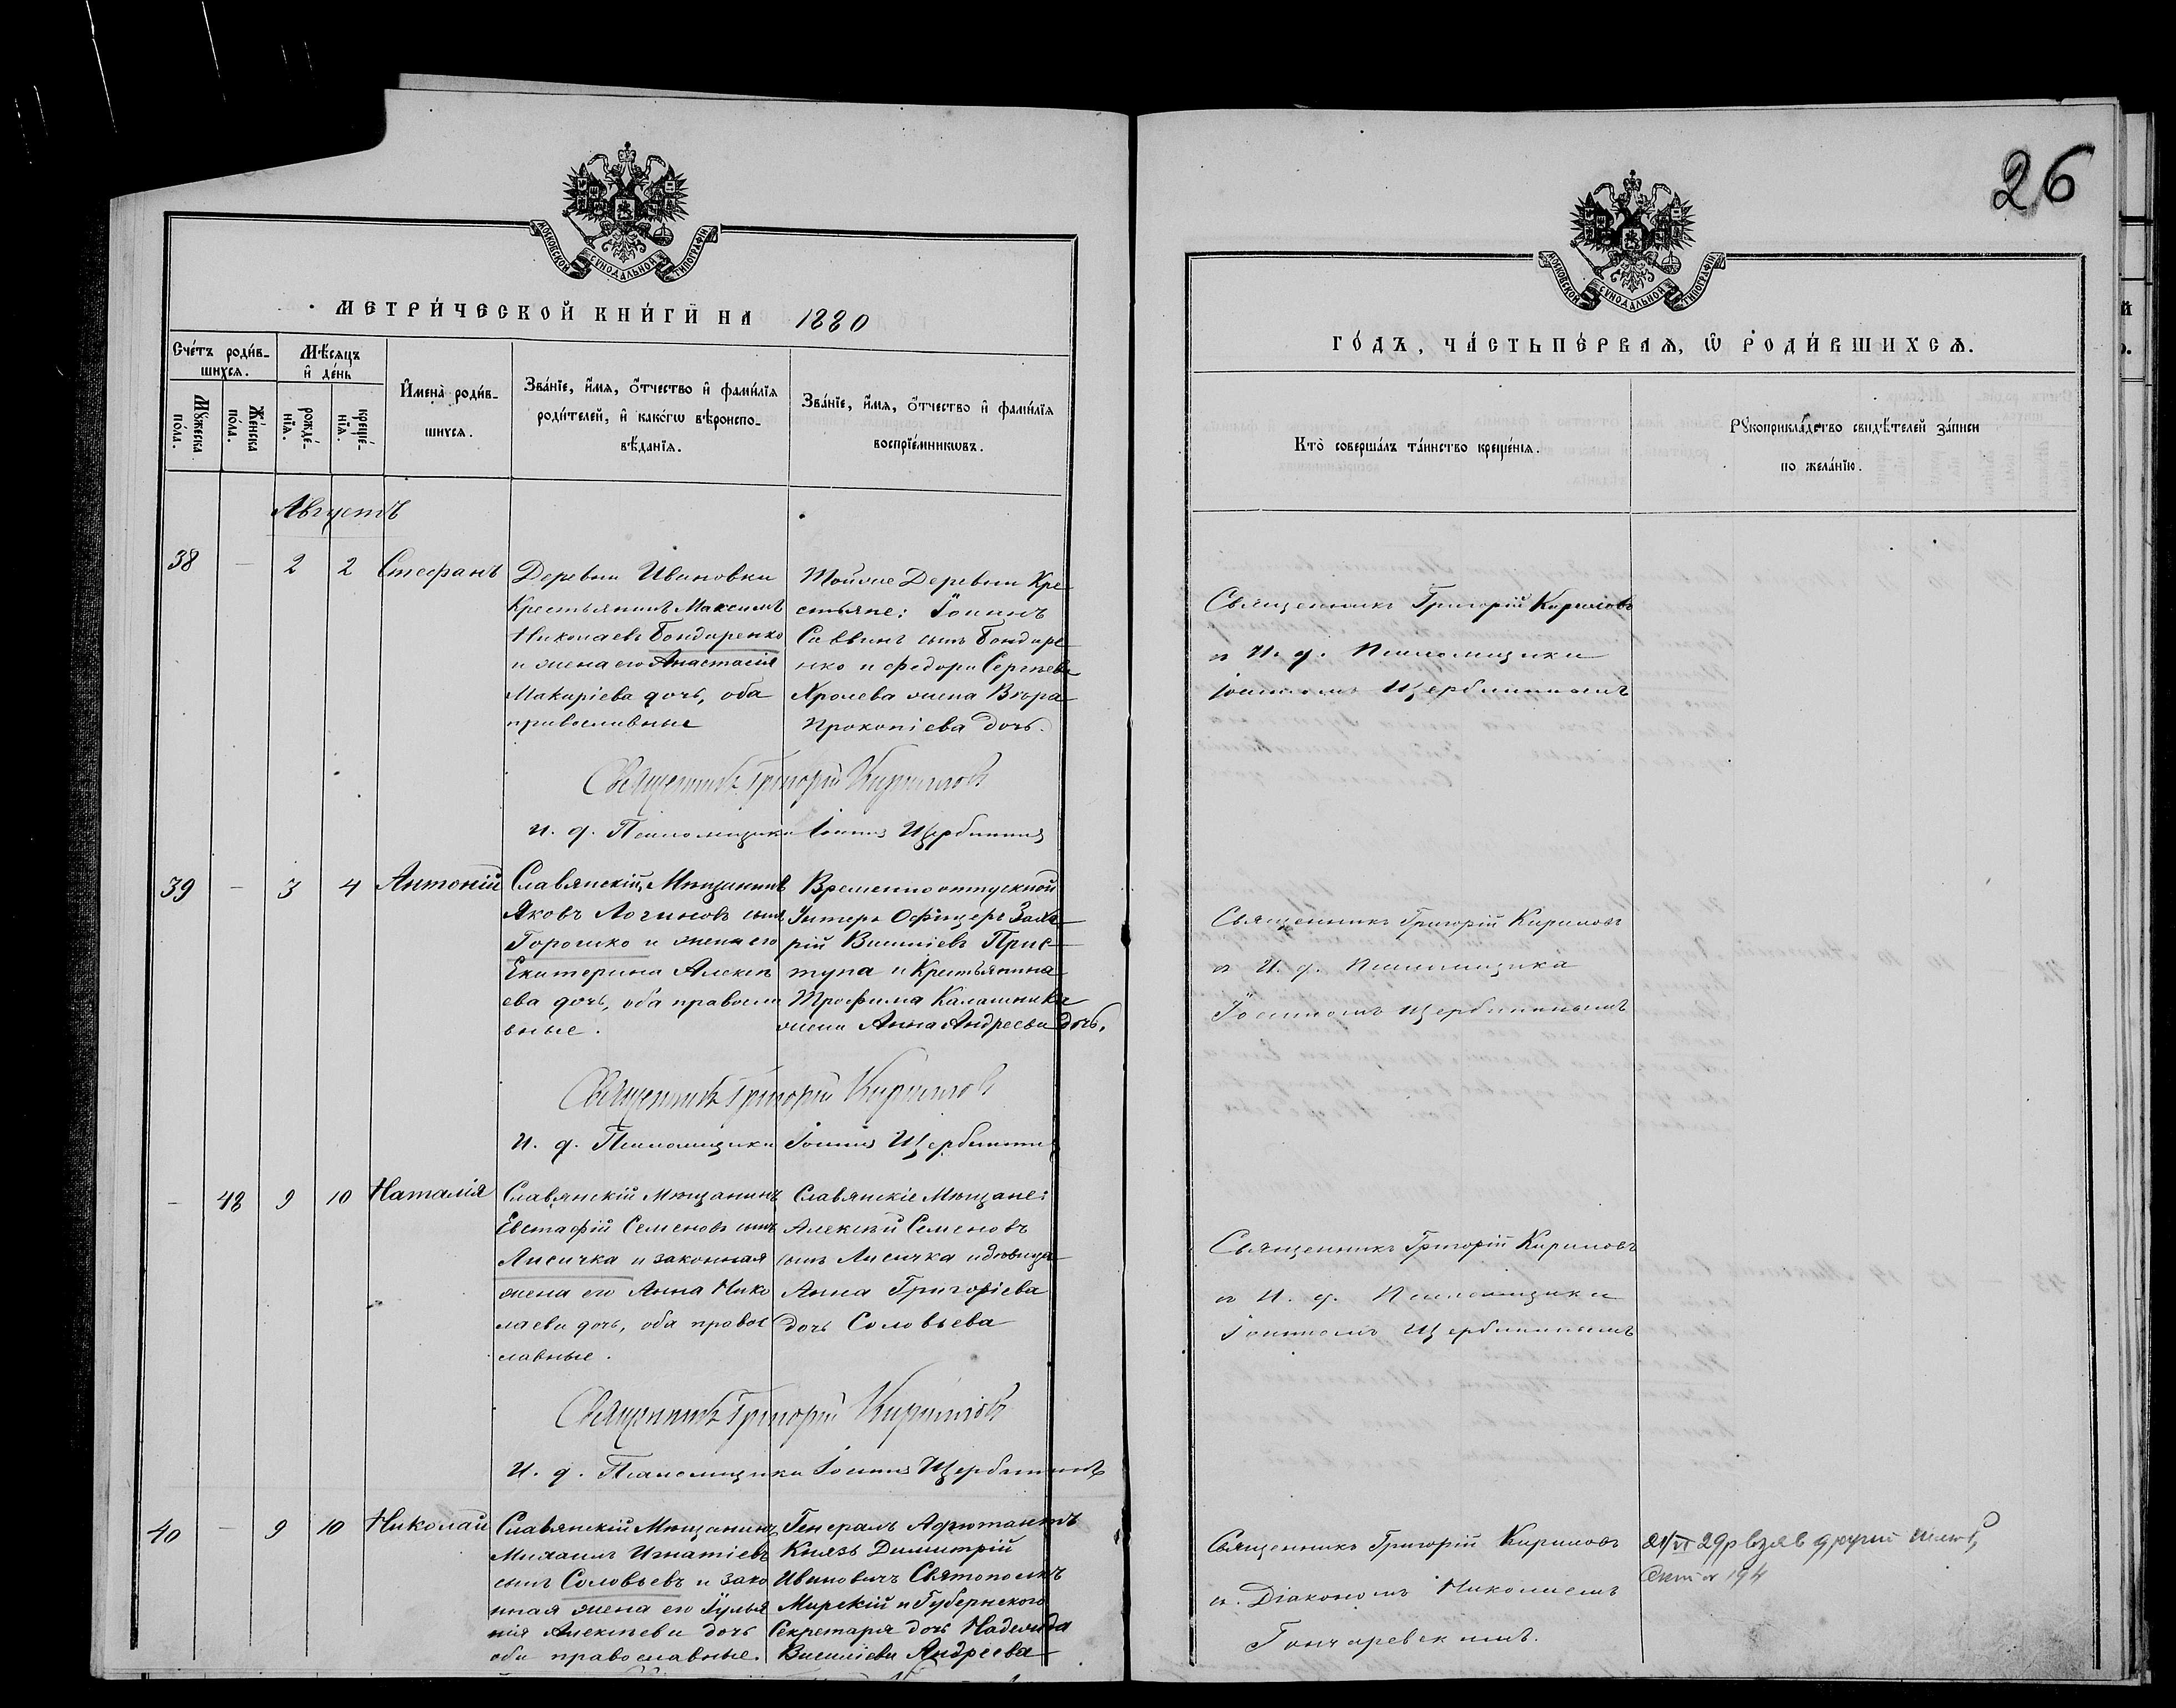 26
МОСКОВСКОЙ СУНОДАЛЬНОЙ ТИПОГРАФІИ
МЕТРИ́ЧЕСКОЙ КНИ́ГИ НА 1880
Сче́тъ роди́в-
шихсѧ.
Мꙋ́жеска по́ла.
Же́нска по́ла.
Мѣ́сѧцъ
и҆ де́нь
рожде́-
нїѧ.
креще́-
нїѧ.
И҆мена̀ роди́в-
шихсѧ.
Зва́нїе, и҆́мѧ, ѻ҆́тчество и҆ фами́лїѧ
роди́телей, и҆ како́гѡ вѣроиспо-
вѣ́данїѧ.
Зва́нїе, и҆́мѧ, ѻ҆́тчество и҆ фами́лїѧ
воспрїе́мникѡвъ.
Августъ
38 — 2 2 Стефанъ
Деревни Ивановки
Крестьянинъ Максимъ
Николаевъ Бондаренко
и жена его Анастасія
Макаріева дочь, оба
православные
Тойже Деревни Кре
стьяне: Іоаннъ
Саввинъ сынъ Бондаре
нко и Федора Сергѣева
жена Вѣра
Прокопіева дочь.
Священникъ Григорій Кириловъ
и. д. Псаломщика Іоаннъ Щербининъ
39 — 3 4 Антоній
Славянскій Мѣщанинъ
Яковъ Логиновъ сынъ
Горошко и жена его
Екатерина Алексѣ
ева дочь, оба правосла
вные.
Временноотпускной
Унтеръ Офицеръ Заха
рій Василіевъ Прис
тупа и Крестьянина
Трофима Калашника
жена Анна Андреева дочь.
Священникъ Григорій Кириловъ
И. д. Псаломщика Іоаннъ Щербининъ
— 48 9 10 Наталія
Славянскій Мѣщанинъ
Евстафій Семеновъ сынъ
Лисичка и законная
жена его Анна Нико
лаева дочь, оба правос
лавные.
Славянскіе Мѣщане:
Алексѣй Семеновъ
сынъ Лисичка и дѣвица
Анна Григоріева
дочь Соловьева
Священникъ Григорій Кириловъ
И. д. Псаломщика Іоаннъ Щербининъ
40 — 9 10 Николай
Славянскій Мѣщанинъ
Михаилъ Игнатіевъ
сынъ Соловьевъ и зако
нная жена его Іулья
нія Алексѣева дочь
оба православные.
Генералъ Адъютантъ
Князь Димитрій
Ивановичъ Святополкъ
Мирскій и Губернскаго
Секретаря дочь Надежда
Василіева Андреева
МОСКОВСКОЙ СУНОДАЛЬНОЙ ТИПОГРАФІИ
ГО́ДЪ, ЧА́СТЬ ПЕ́РВАѦ, Ѡ҆ РОДИ́ВШИХСѦ.
Кто̀ соверша́лъ та́инство креще́нїѧ.
Рꙋкоприкла́дство свидѣ́телей за́писи
по жела́нїю.
Священникъ Григорій Кириловъ
съ И. д. Псаломщика
Іоанномъ Щербининымъ
Священникъ Григорій Кириловъ
съ И. д. Псаломщика
Іоанномъ Щербининымъ
Священникъ Григорій Кириловъ
съ И. д. Псаломщика
Іоанномъ Щербининымъ
Священникъ Григорій Кириловъ
съ Діакономъ Николаемъ
Гончаревскимъ.
21/VI 29р взяв другий
194